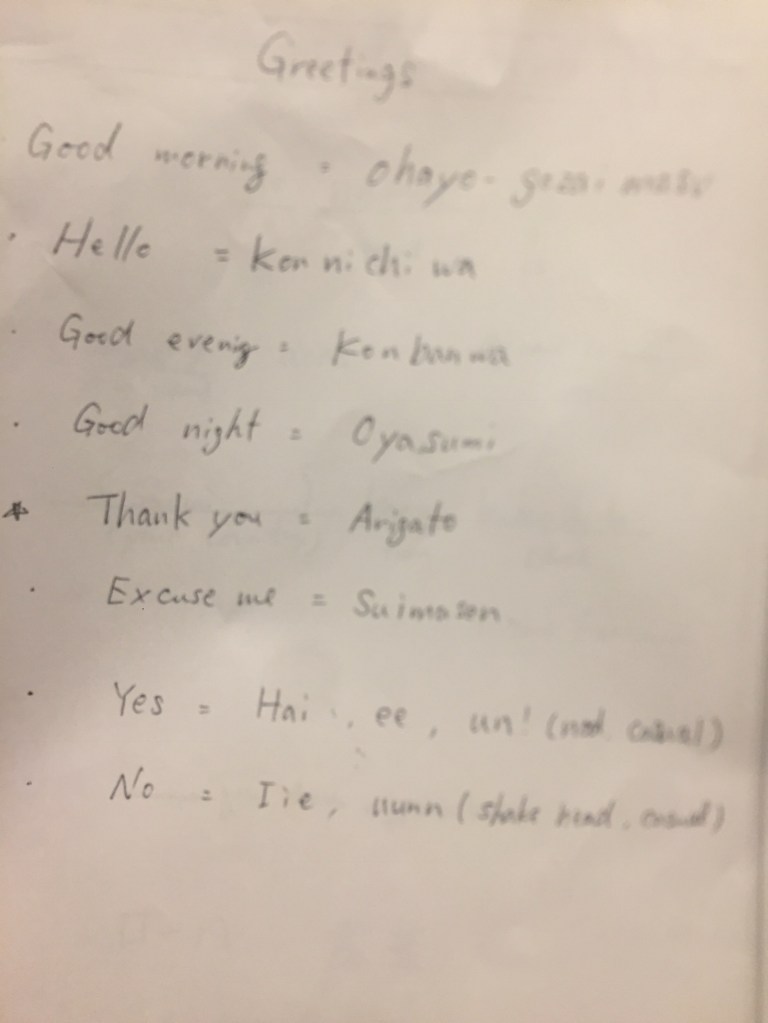 Greetings
Good morning = ohayo- gozaimasu
· Hello = kon nichi wa
· Good evenig = Konbanwa
· Good night = Oyasumi
☆ Thank you = Arigato
· Excuse me = Suimasen
· Yes = Hai, ee, un! (nod casual)
· No = Iie, uunn (shake head. casual)